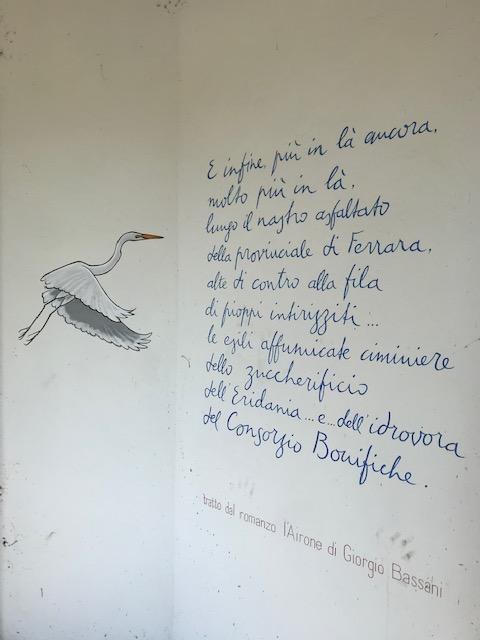 E infine, più in là ancora,
molto più in là,
lungo il nastro asfaltato
della provinciale di Ferrara,
alte di contro alla fila
di pioppi intirizziti...
le esili affumicate ciminiere
dello zuccherificio
dell'Eridania...e...dell'idrovora
del Consorzio Bonifiche.
tratto dal romanzo l'Airone di Giorgio Bassani